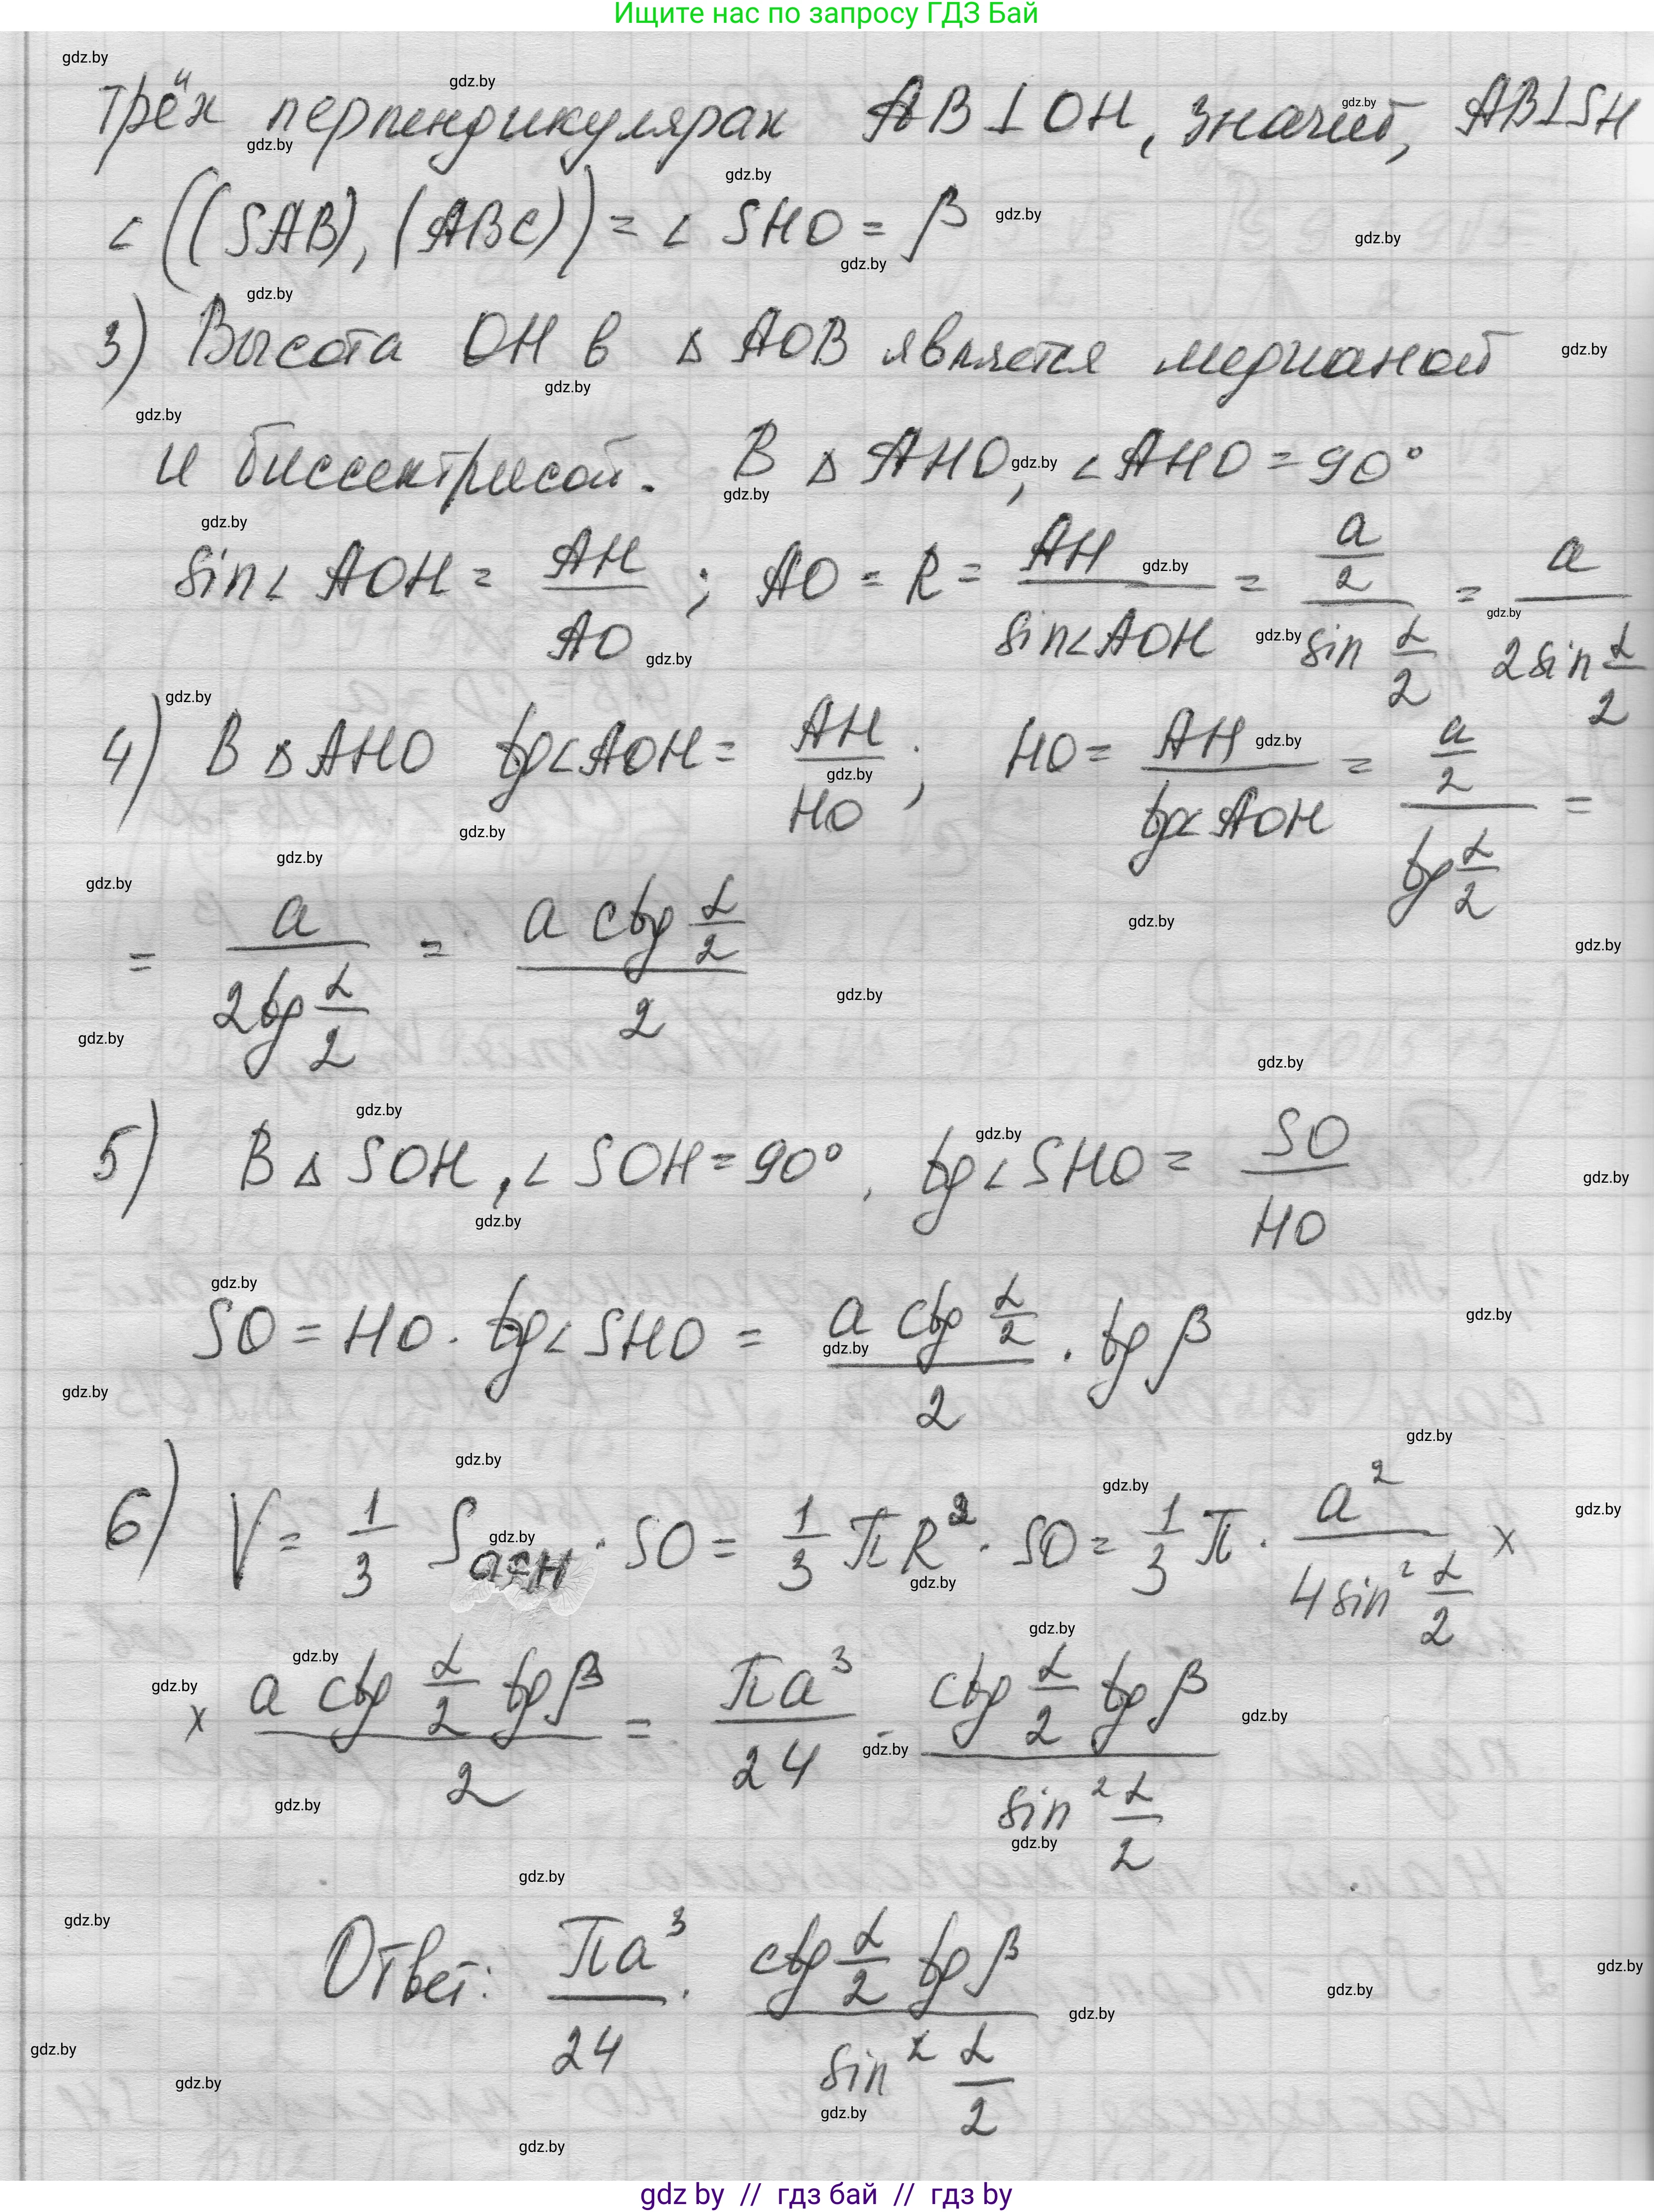 Ищите нас по запросу ГДЗ Бай
трёх перпендикулярах AB ⊥ OH, значит, AB⊥SH
∠((SAB), (ABC)) = ∠ SHO = β
3) Высота OH в △ AOB является медианой
и биссектрисой. В △ AHO, ∠AHO = 90°
sin∠ AOH = AH/AO ; AO = R = AH/sin∠AOH = (a/2)/(sin α/2) = a/(2sin α/2)
4) В △AHO tg∠AOH = AH/HO ; HO = AH/tg∠AOH = (a/2)/(tg α/2) =
= a/(2tg α/2) = (a ctg α/2)/2
5) В △ SOH, ∠ SOH = 90°, tg∠SHO = SO/HO
SO = HO · tg∠SHO = (a ctg α/2)/2 · tg β
6) V = 1/3 S осн · SO = 1/3 πR² · SO = 1/3 π · a²/(4 sin² α/2) ×
× (a ctg α/2 tg β)/2 = πa³/24 · (ctg α/2 tg β)/(sin² α/2)
Ответ: πa³/24 · (ctg α/2 tg β)/(sin² α/2)
gdz.by
gdz by // гдз бай // гдз by